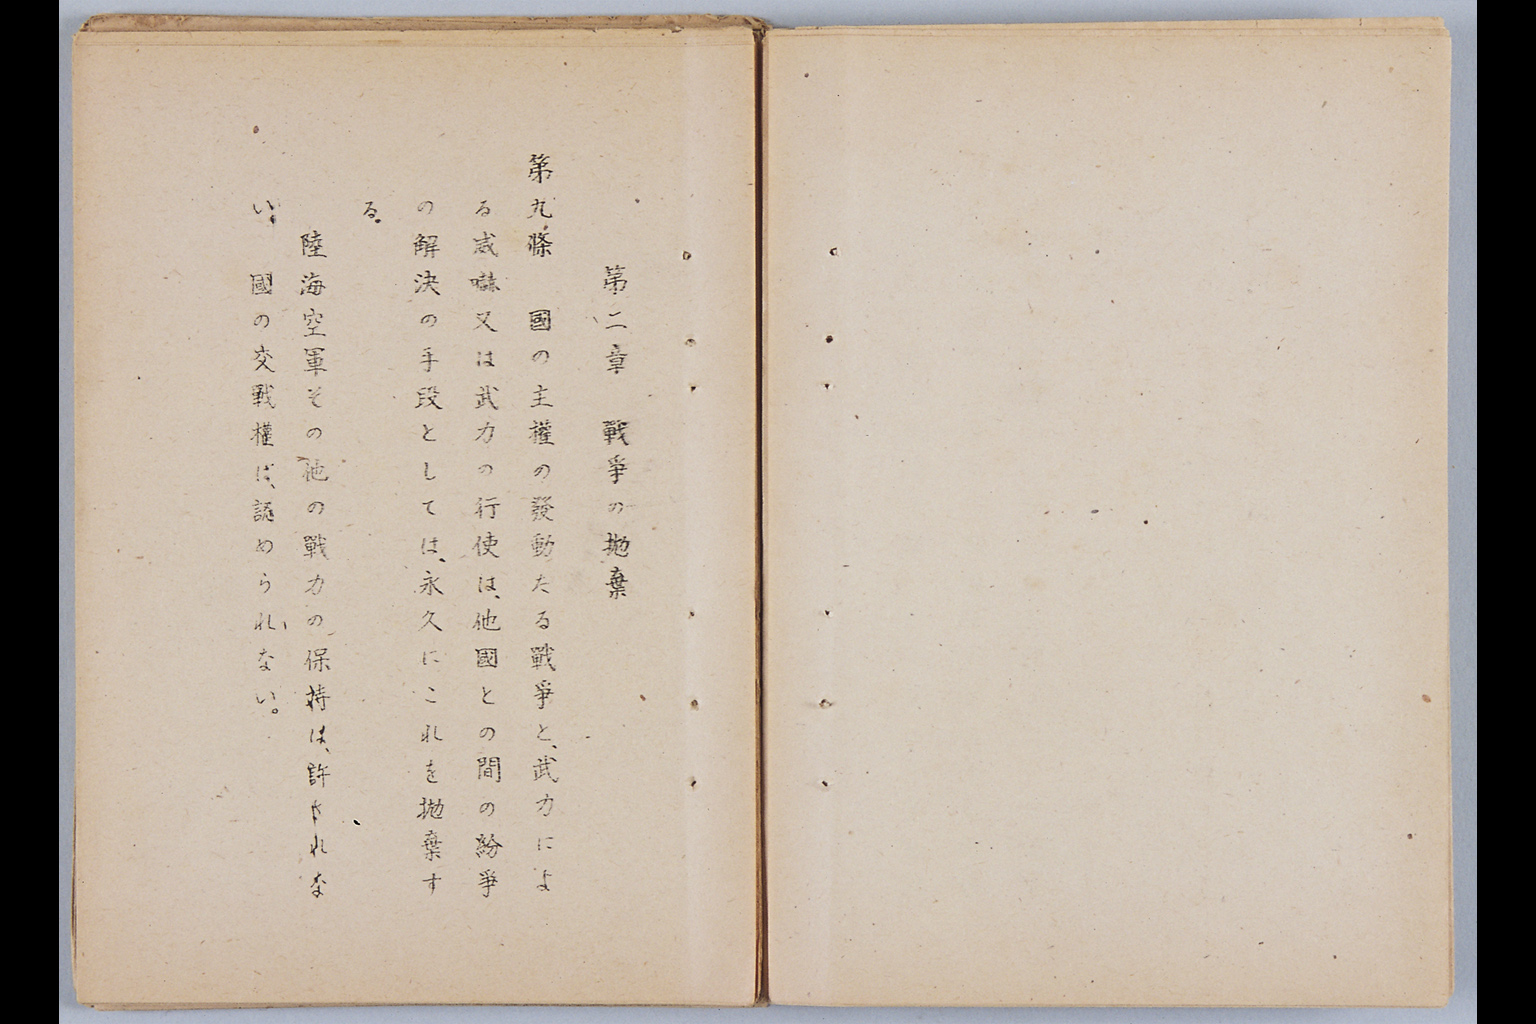 第二章　戰爭の抛棄
第九條　國の主權の發動たる戰爭と、武力によ
る威嚇又は武力の行使は、他國との間の紛爭
の解決の手段としては、永久にこれを抛棄す
る。
陸海空軍その他の戰力の保持は、許されな
い。國の交戰權は、認められない。